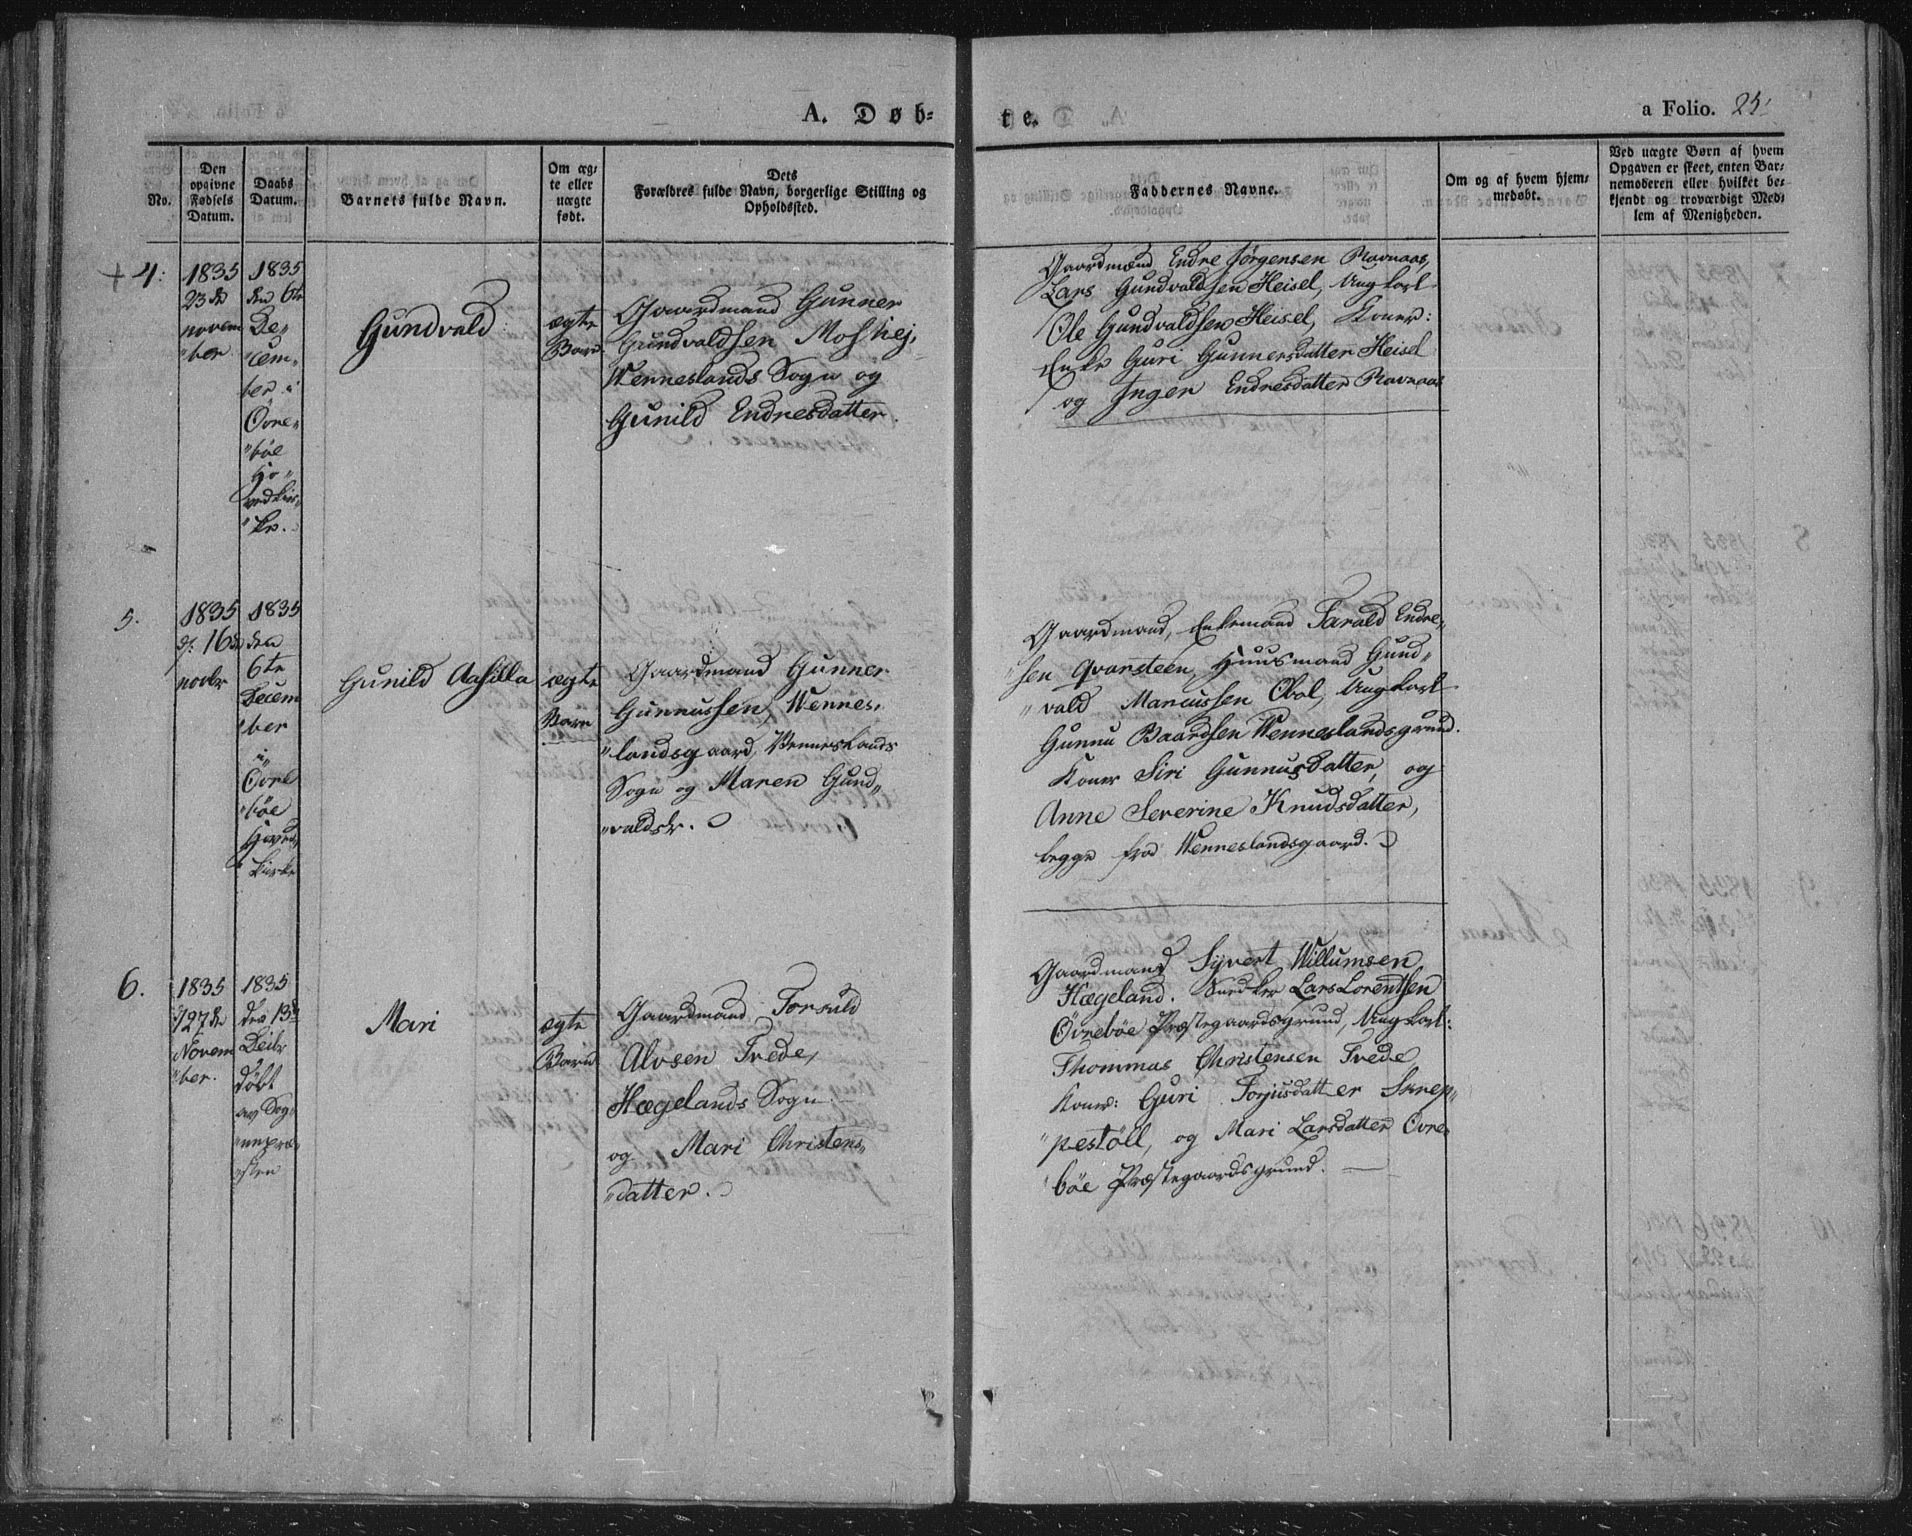 A. Døb=
te.
a Folio. 25.
No.
Den
opgivne
Fødsels
Datum.
Daabs
Datum.
Barnets fulde Navn.
Om æg=
te eller
uægte
født.
Dets
Forældres fulde Navn, borgerlige Stilling og
Opholdssted.
Faddernes Navne.
Om og af hvem hjem=
medøbt.
Ved uægte Børn af hvem
Opgaven er skeet, enten Bar=
nemoderen eller hvilket be=
kjendt og troværdigt Med=
lem af Menigheden.
+ 4.
1835
23de
novem
"ber
1835
den 6te
De„
"cem„
ber i
Øvre„
"bøe
Ho„
vedkir„
"ke.
Gundvald
ægte
Barn.
Gaardmand Gunner
Gundvaldsen Moshej,
Wenneslands Sogn og
Gunild Endresdatter.
Gaardmænd Endre Jørgensen Ravnaas,
Lars Gundvaldsen Heisel, Ungkarl
Ole Gundvaldsen Heisel, Koner:
Enke Guri Gunnersdatter Heisel
og Inger Endresdatter Ravnaas
5.
1835
d. 16de
novbr
1835
den
6te
Decem
"ber
i
Øvre
"bøe
Hoved„
"kirke
Gunild Aasilla
ægte
Barn
Gaardmand Gunner
Gunnussen, Wennes„
"landsgaard, Venneslands
Sogn og Maren Gund„
"valdsdr.
Gaardmand, Enkemand Tarald Endre„
"sen Qvarsteen, Huusmand Gund„
"vald Marcussen Obol, Ungkarl
Gunnu Baardsen Wenneslandsgrund.
Koner Siri Gunnusdatter, og
Anne Severine Knudsdatter,
begge fra Wenneslandsgaard.
6.
1835
d 27de
Novem
"ber.
1835
den 13de
Decbr
døbt
av Sog„
"nepræ„
"sten
Mari
ægte
Barn
Gaardmand Torsuld
Alvsen Trede,
Hægelands Sogn
og Mari Christens„
"datter.
Gaardmand Syvert Willumsen
Hægeland. Snedker Lars Lorentsen
Øvrebøe Præstegaardsgrund, Ungkarl:
Thommas Christensen Trede
Koner: Guri Torjusdatter Skrep„
"pestøll, og Mari Larsdatter Øvre„
"bøe Præstegaardsgrund.